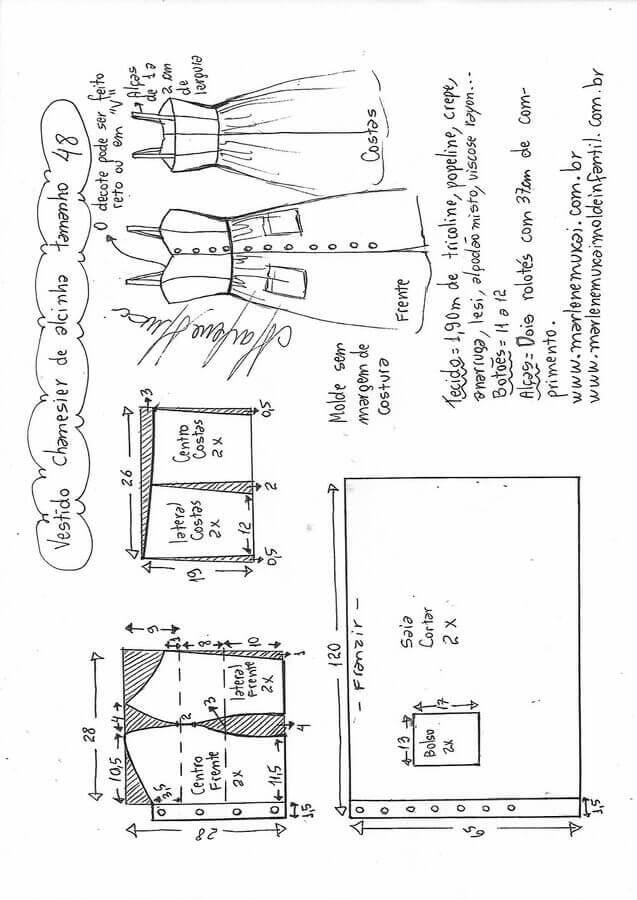 Vestido Chamesier de alcinha tamanho 48
O decote pode ser feito
reto ou em "V"
Alças
de 1 a
2 cm
de
largura
Costas
Frente
Marlene Mukai
Molde sem
margem de
costura
Tecido = 1,90m de tricoline, popeline, crepe,
anarruga, lesi, alpodão misto, viscose rayon...
Botões = 11 a 12
Alças = Dois rolotés com 37cm de com-
primento.
www.marlenemukai.com.br
www.marlenemukaimoldeinfantil.com.br
26
3
19
Centro
Costas
2x
lateral
Costas
2x
0,5
2
12
0,5
28
10,5
4
9
1
8
10
3,5
2
3
Centro
Frente
2x
lateral
Frente
2x
1
4
11,5
28
1,5
120
- Franzir -
Saia
Cortar
2x
Bolso
2x
13
17
1,5